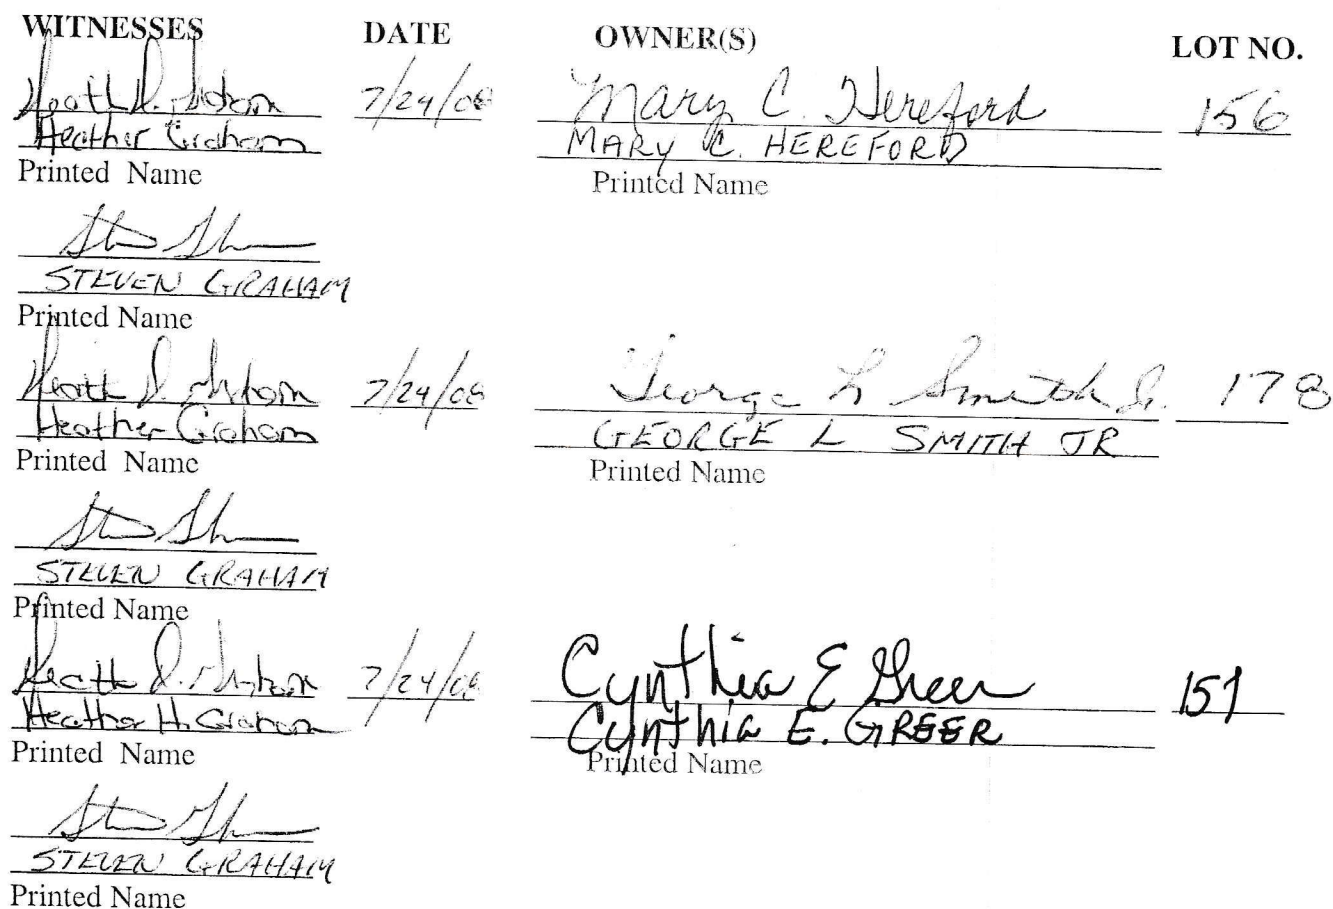 WITNESSES DATE OWNER(S) LOT NO.
7/24/08 Mary C. Hereford 156
Heather Graham MARY C. HEREFORD
Printed Name Printed Name
STEVEN GRAHAM
Printed Name
7/24/08 George L Smith Jr. 178
Heather Graham GEORGE L SMITH JR
Printed Name Printed Name
STEVEN GRAHAM
Printed Name
7/24/08 Cynthia E Greer 151
Heather H. Graham Cynthia E. GREER
Printed Name Printed Name
STEVEN GRAHAM
Printed Name